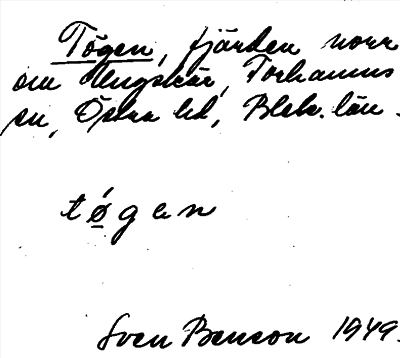 Tögen, fjärden norr
om Ungskär, Torhamns
sn, Östra hd, Blek. län.
tø̲gen
Sven Benson 1949.